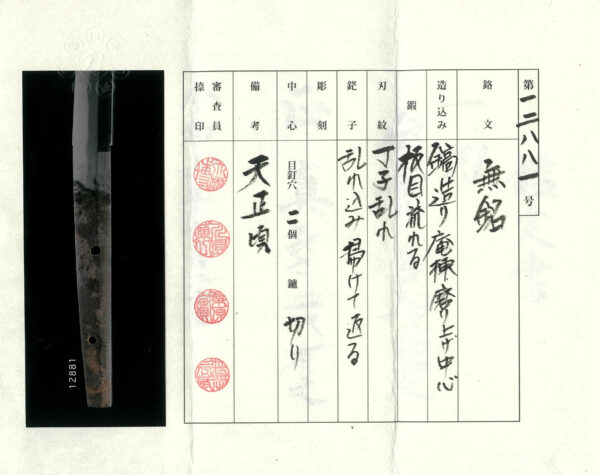 第一二八八一号
銘文 無銘
造り込み 鎬造り庵棟磨り上げ中心
鍛 板目流れる
刃紋 丁子乱れ
鋩子 乱れ込み掃けて返る
彫刻
中心 目釘穴 二個 鑢 切り
備考 天正頃
審査員捺印
12881